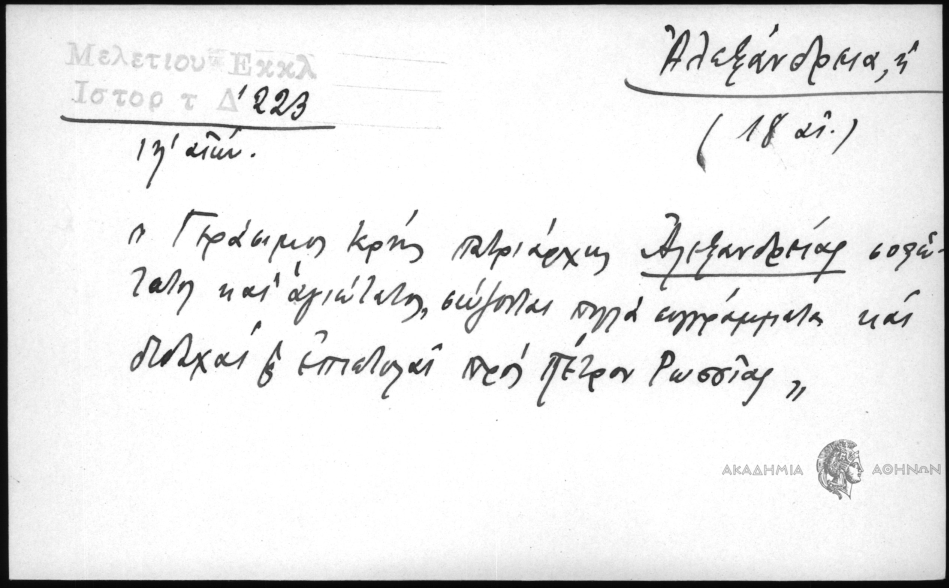 Μελετίου Εκκλ
Ιστορ τ Δ' 223
ιη' αἰών.
Ἀλεξάνδρεια, ἡ
(18 αἰ.)
" Γεράσιμος Κρής πατριάρχης Ἀλεξανδρείας σοφώ-
τατος καί ἁγιώτατος, σώζονται πολλά συγγράμματα καί
διδαχαί ἐπιστολαί πρός Πέτρον Ρωσσίας "
ΑΚΑΔΗΜΙΑ ΑΘΗΝΩΝ